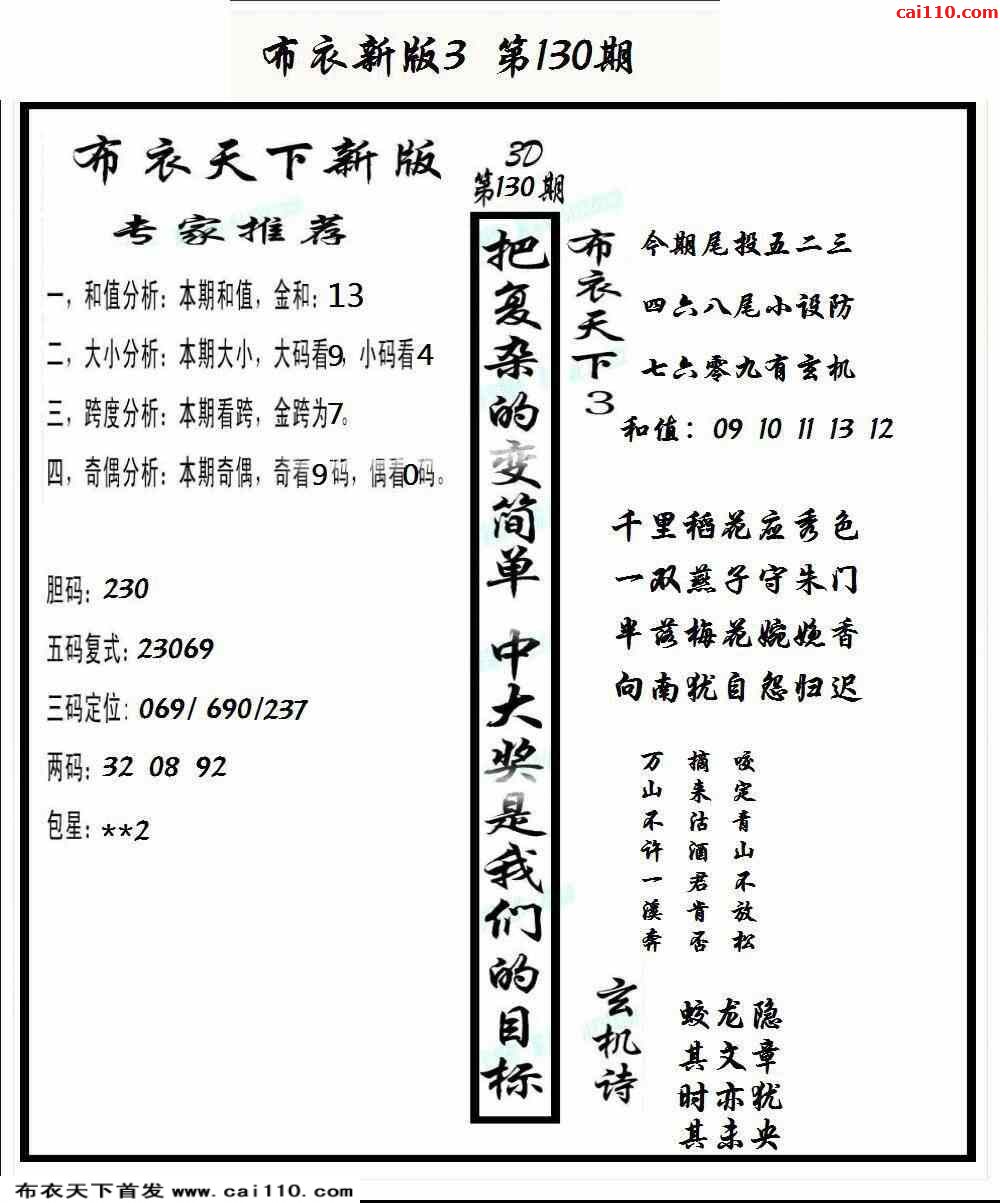 cai110.com
布衣新版3 第130期
布衣天下新版
专家推荐
一，和值分析：本期和值，金和：13
二，大小分析：本期大小，大码看9，小码看4
三，跨度分析：本期看跨，金跨为7。
四，奇偶分析：本期奇偶，奇看9码，偶看0码。
胆码：230
五码复式：23069
三码定位：069/ 690/237
两码：32 08 92
包星：**2
3D
第130期
把复杂的变简单 中大奖是我们的目标
布衣天下3
今期尾投五二三
四六八尾小设防
七六零九有玄机
和值：09 10 11 13 12
千里稻花应秀色
一双燕子守朱门
半落梅花婉娩香
向南犹自怨归迟
咬定青山不放松
摘来沽酒君肯否
万山不许一溪奔
玄机诗
蛟龙隐
其文章
时亦犹
其未央
布衣天下首发 www.cai110.com